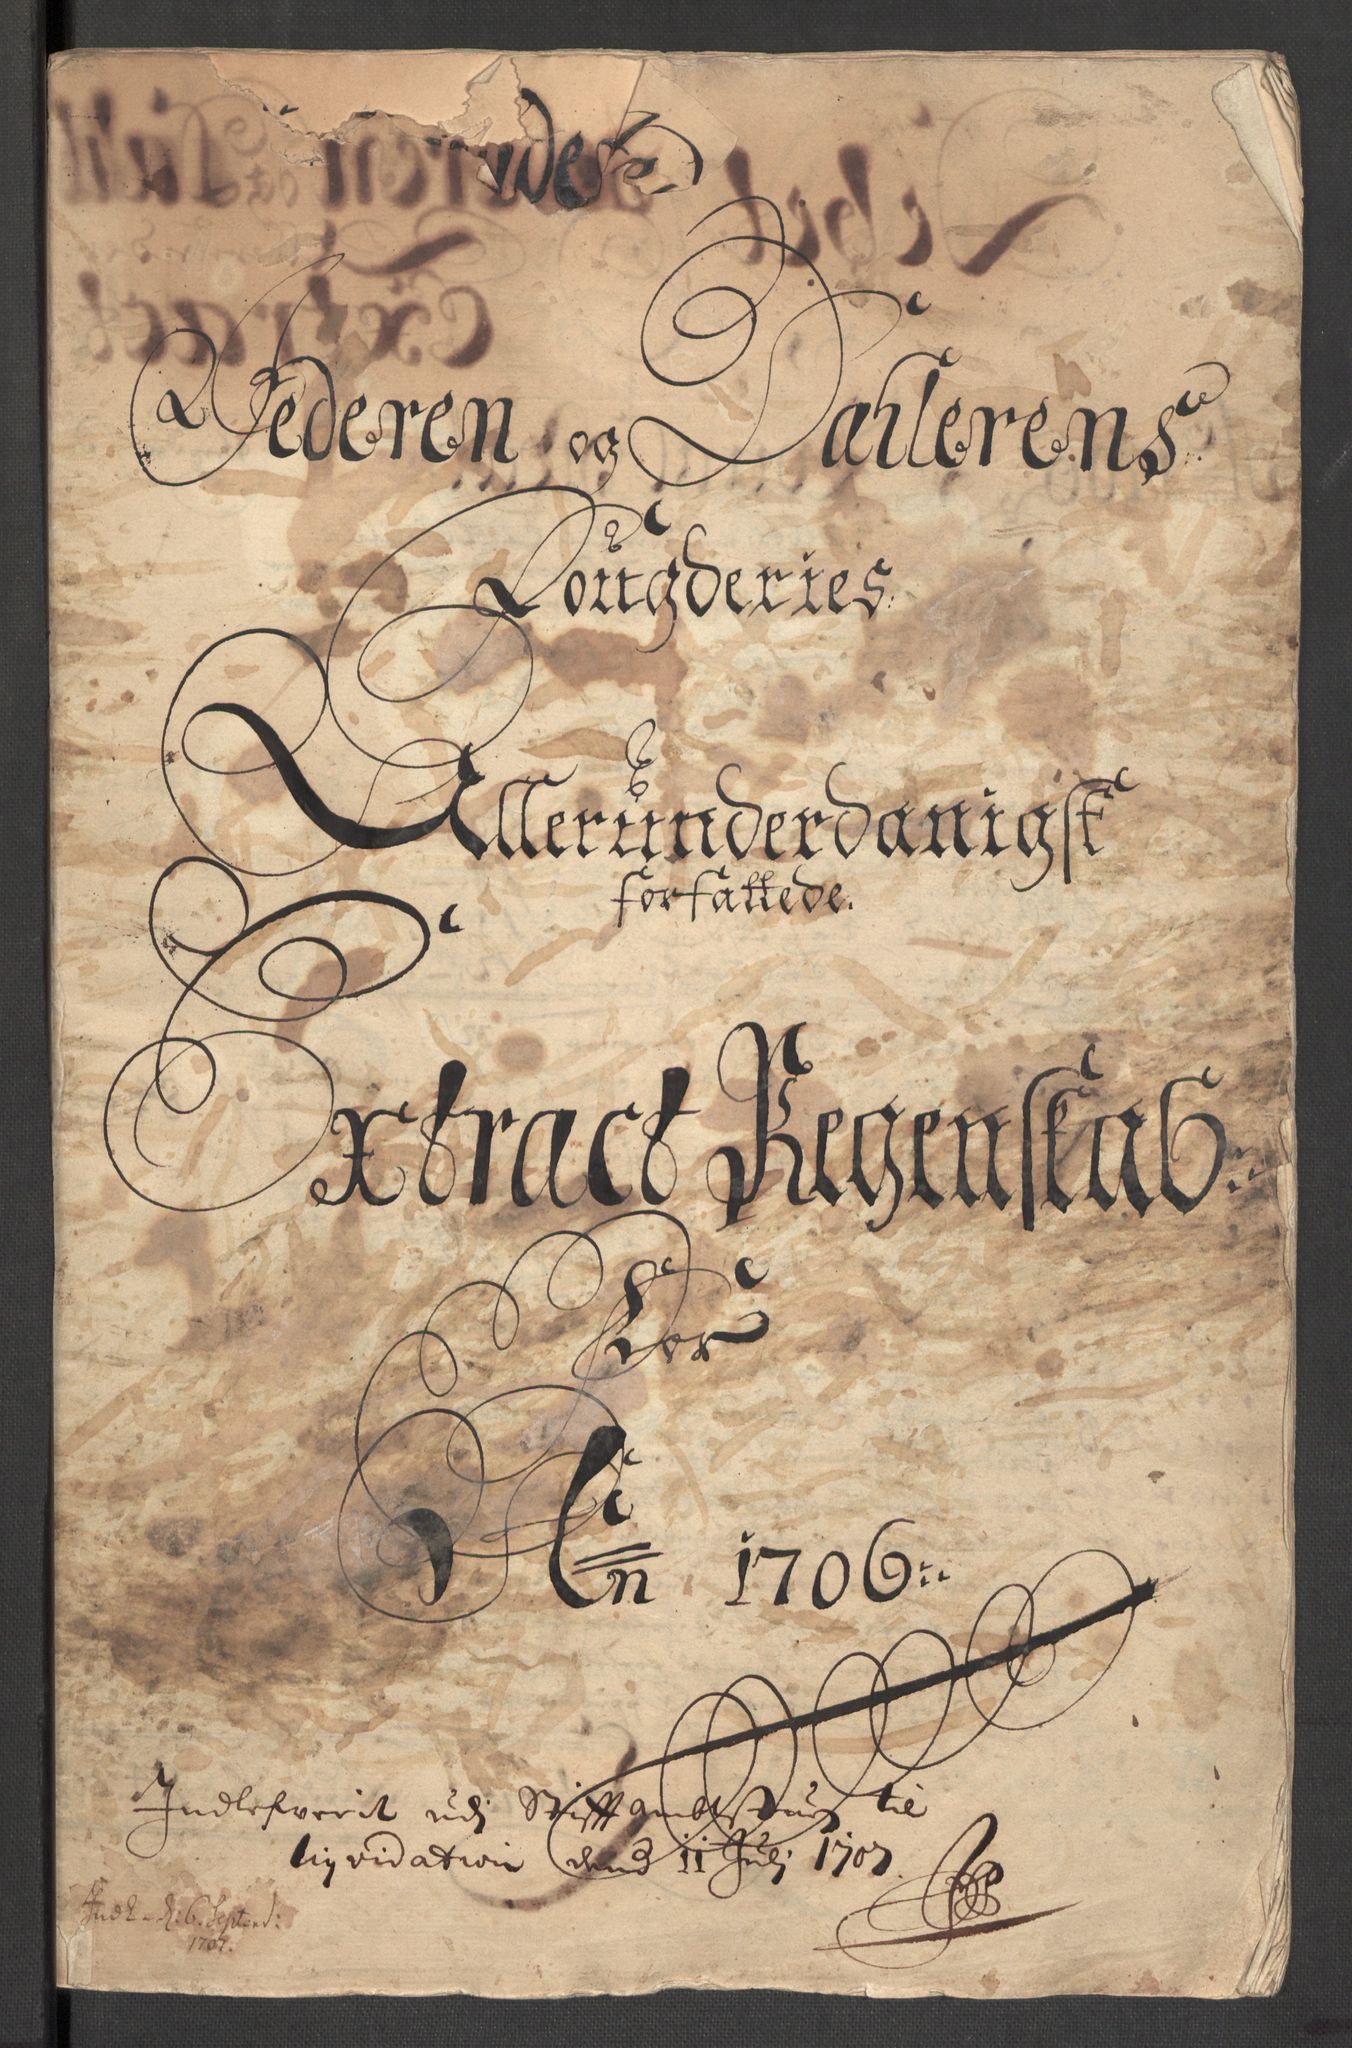 Jederen og Dahlerens
Fougderies.
Allerunderdanigst
forfattede.
Extract Regenskab
For
An 1706
Indlefverit udj Stifftambtstuen til
liqvidation dend 11 Julj 1707.
Indl. d: 6. Septembr:
1707.